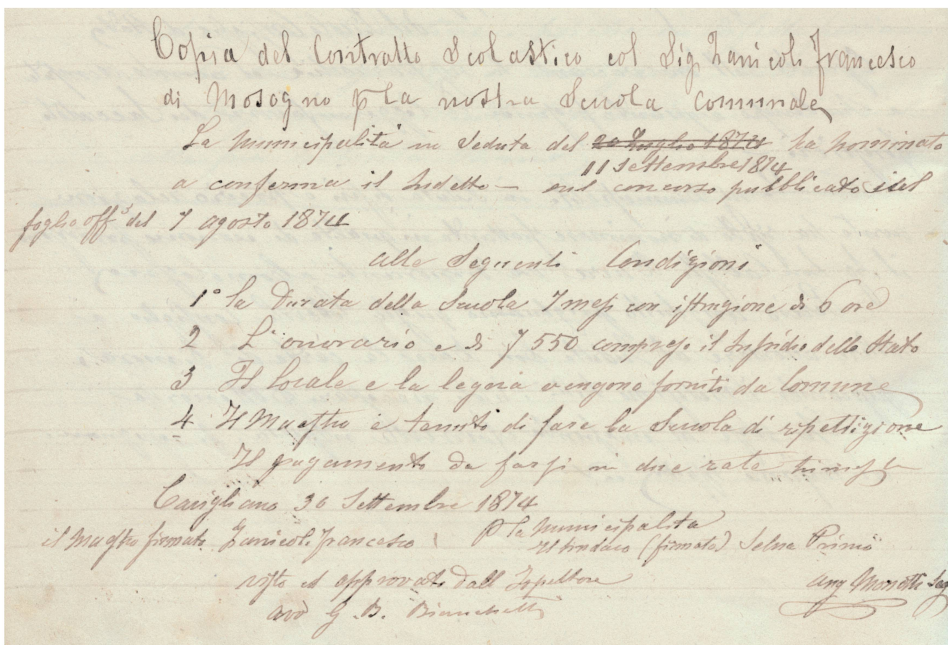 Copia del Contratto Scolastico col Sig Zanicoli Francesco
di Mosogno p la nostra Scuola Comunale
La Municipalità in Seduta del 20 Luglio 1874 ha nominato
11 Settembre 1874
a conferma il sudetto – sul concorso pubblicato del
foglio off del 7 agosto 1874
alle Seguenti Condizioni
1° la Durata della Scuola 7 mesi con istruzione di 6 ore
2 L'onorario e di f 550 compreso il sussidio dello Stato
3 Il locale e la legna vengono forniti da Comune
4 Il Maestro è tenuto di fare la Scuola di ripettizione
Il pagamento da farsi in due rate
Cavigliano 30 Settembre 1874
il Maestro firmato Zanicoli Francesco
P la Municipalità
Il Sindaco (firmato) Selna Primo
visto ed approvato Dall Ispettore
avv G. B. Bianchetti
Ang Monotti Seg